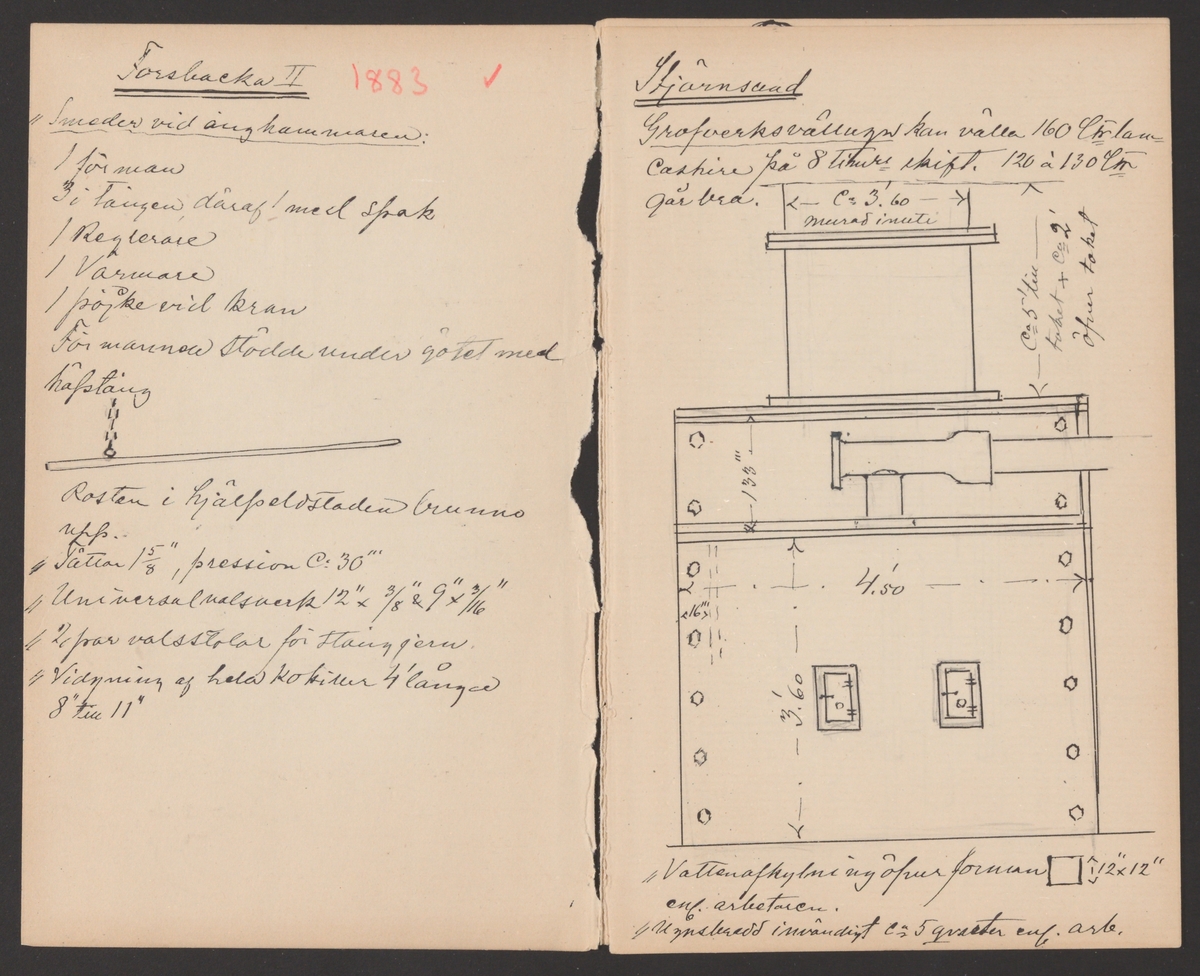 Forsbacka II 1883 ✓
" Smeder vid ånghammaren:
1 förman
3 i tången, däraf 1 med spak
1 Reglerare
1 Värmare
1 pojke vid kran
Förmannen stödde under götet med
häfstång
Rosten i hjälpeldstaden brunno
upp.
" Tättor 1 5/8", pression Ca 30'''
" Universalvalsverk 12" x 3/8" & 9" x 3/16"
" 2 par valsstolar för stångjern.
" Vidgning af hela kokiller 4' långa
8" till 11"
Stjärnsund
Grofverksvällugn kan välla 160 Ctr lan-
cashire på 8 timrs skift. 120 à 130 Ctr
går bra.
Ca 3'.60
murad inuti
Ca 5' till
taket + Ca 2'
öfver taket
133'''
4'.50
16'''
3'.60
" Vattenafkylning öfver forman 12" x 12"
enl. arbetaren.
" Ugnsbredd invändigt Ca 5 qvarter enl. arb.